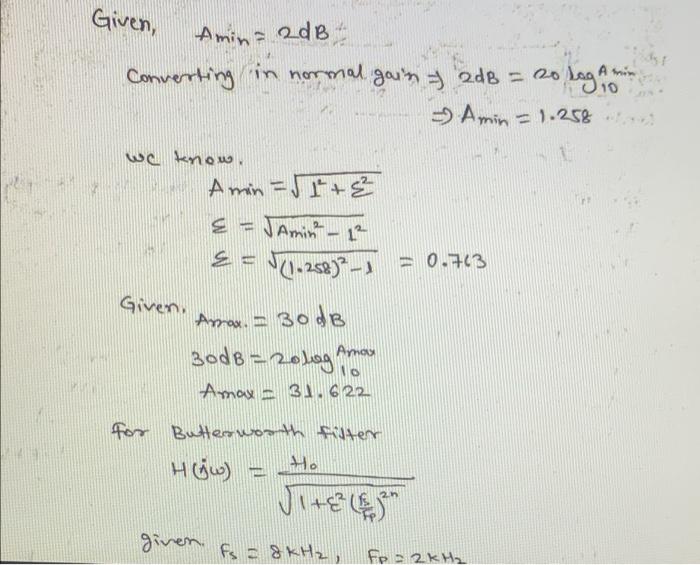 Given, Amin = 2dB
Converting in normal gain ⇒ 2dB = 20 log₁₀ Amin
⇒ Amin = 1.258
we know,
Amin = √(1² + ε²)
ε = √(Amin² - 1²)
ε = √((1.258)² - 1) = 0.763
Given, Amax. = 30 dB
30dB = 20 log₁₀ Amax
Amax = 31.622
for Butterworth filter
H(jω) = H₀ / √(1 + ε² (fs/fp)²ⁿ)
given. Fs = 8 kHz, Fp = 2 kHz